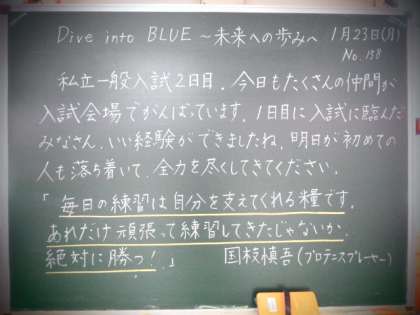 Dive into BLUE ～未来への歩み～ 1月23日(月)
No.138
私立一般入試2日目。今日もたくさんの仲間が
入試会場でがんばっています。1日目に入試に臨んだ
みなさん、いい経験ができましたね。明日が初めての
人も落ち着いて、全力を尽くしてきてください。
「毎日の練習は自分を支えてくれる糧です。
あれだけ頑張って練習してきたじゃないか。
絶対に勝つ！」 国枝慎吾(プロテニスプレーヤー)